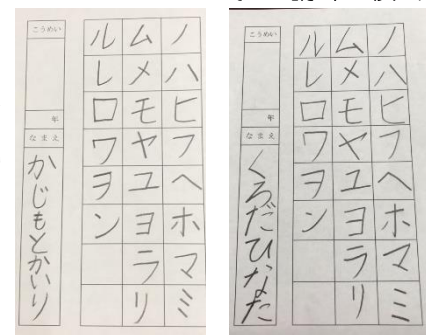 ノハヒフヘホマミ
ムメモヤユヨラリ
ルレロワヲン
こうめい
年
なまえ
かじもとかいり
ノハヒフヘホマミ
ムメモヤユヨラリ
ルレロワヲン
こうめい
年
なまえ
くろだひなた